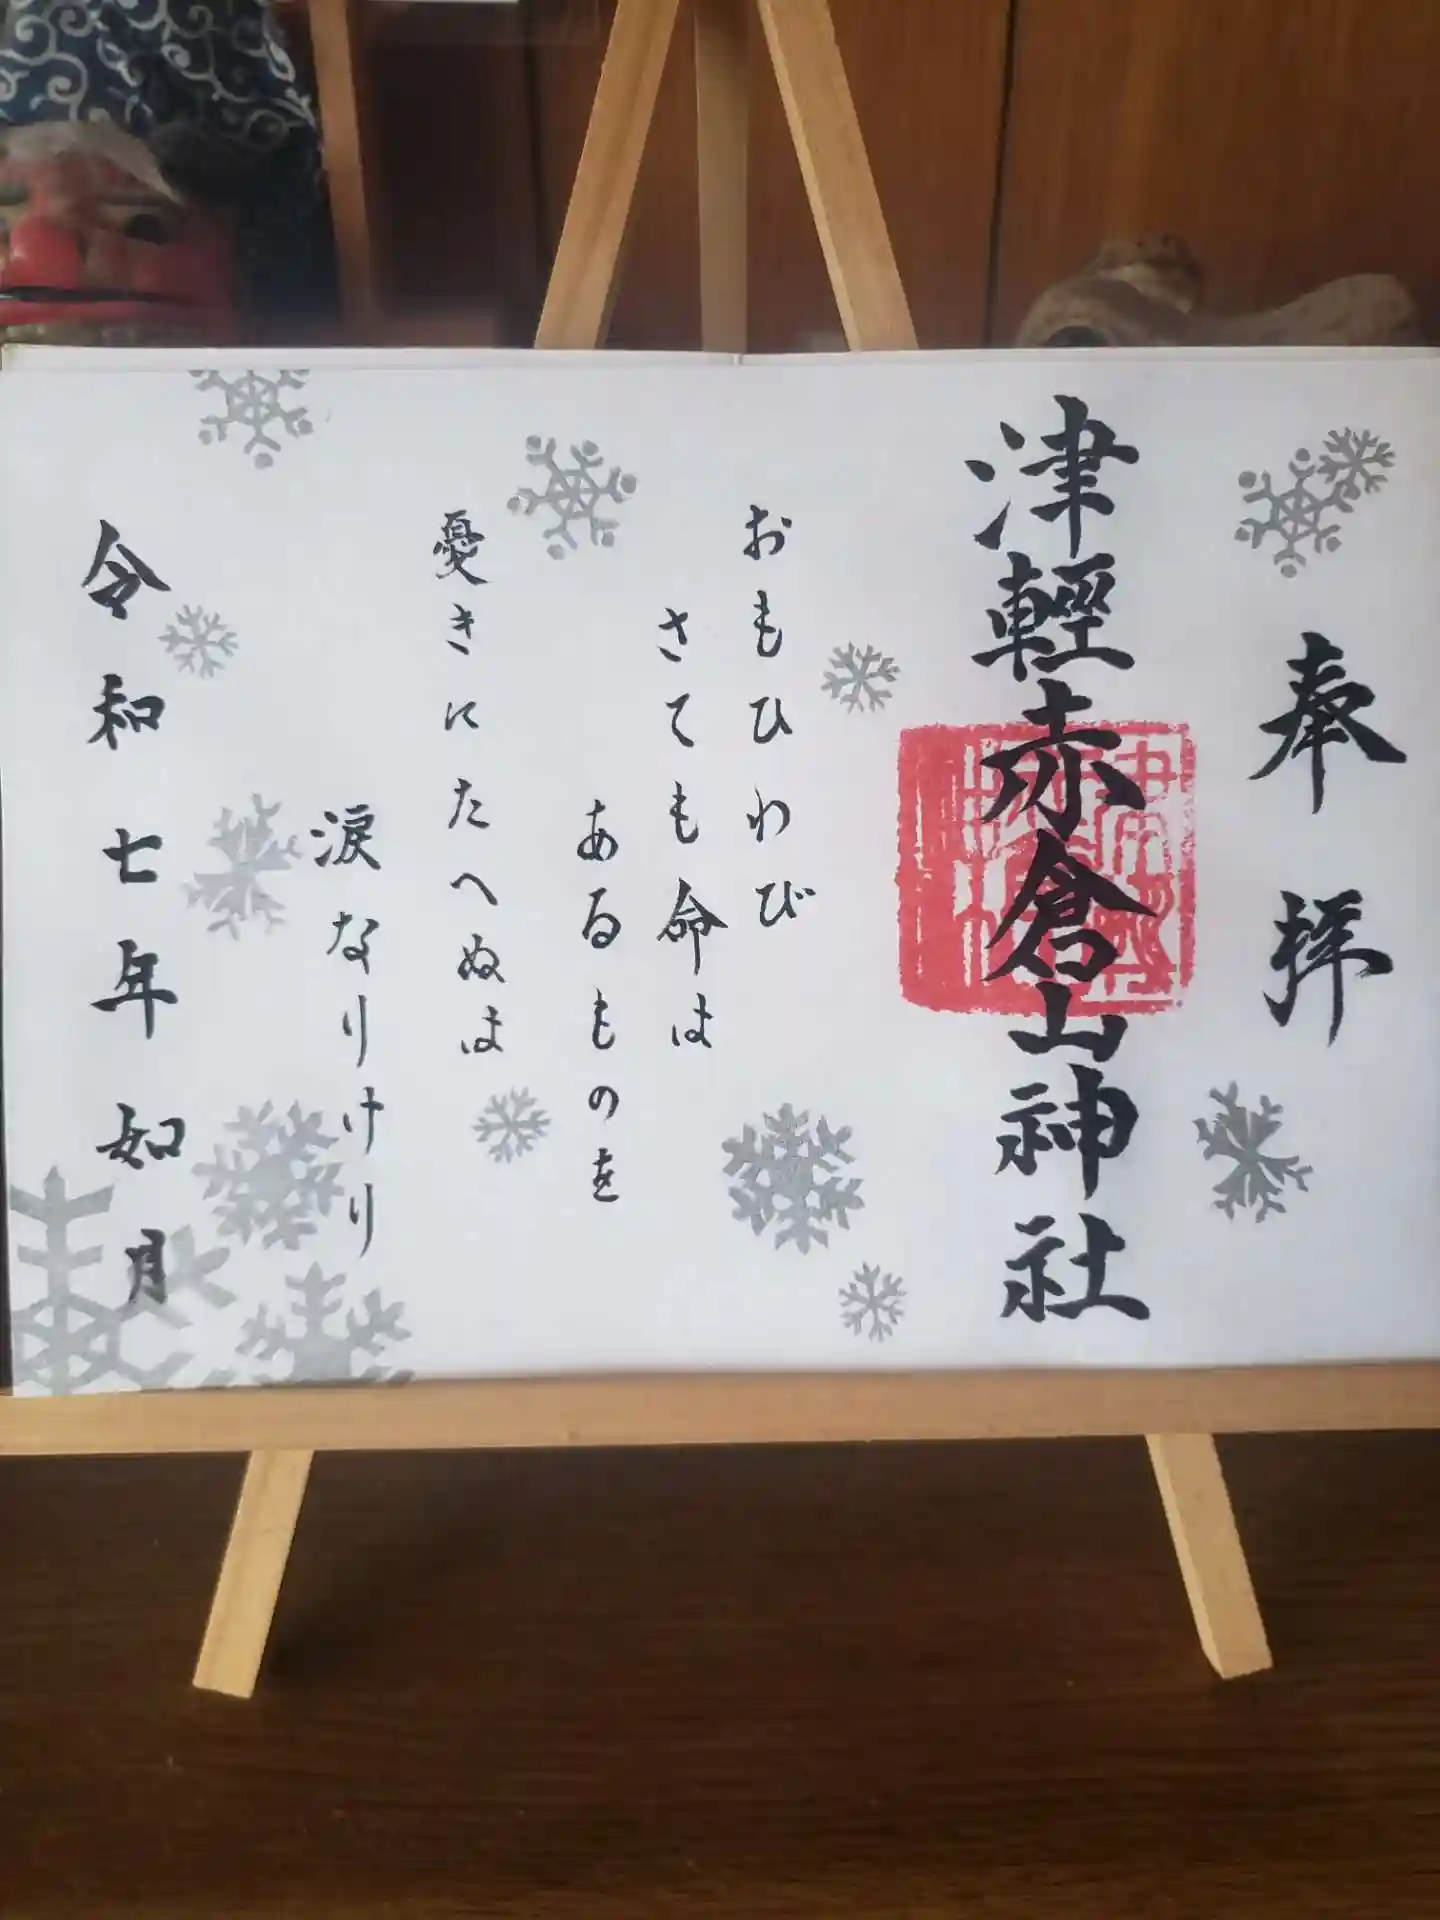 奉拝
津輕赤倉山神社
おもひわび
さても命は
あるものを
憂きにたへぬは
涙なりけり
令和七年如月